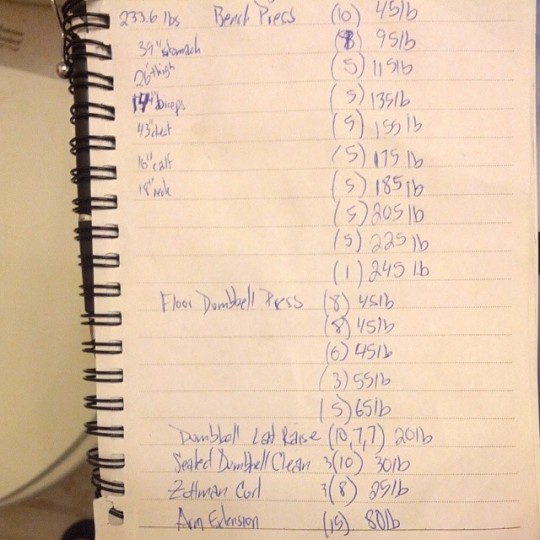 233.6 lbs Bench Press (10) 45lb
39" stomach (8) 95lb
26" thigh (5) 115lb
14" biceps (5) 135lb
43" chest (5) 155lb
16" calf (5) 175lb
18" neck (5) 185lb
(5) 205lb
(5) 225lb
(1) 245lb
Floor Dumbbell Press (8) 45lb
(8) 45lb
(6) 45lb
(3) 55lb
(5) 65lb
Dumbbell Lat Raise (10,7,7) 20lb
Seated Dumbbell Clean 3(10) 30lb
Zottman Curl 3(8) 25lb
Arm Extension (15) 80lb